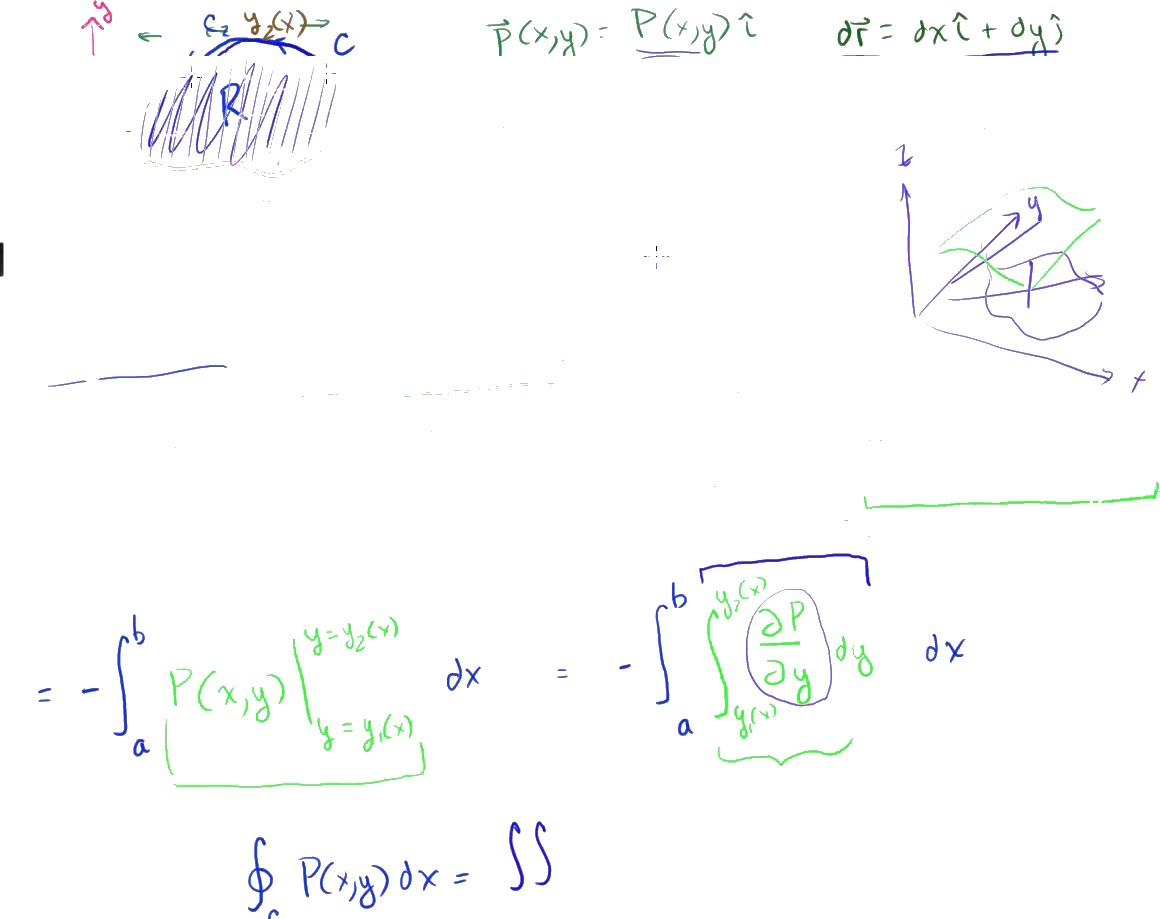 y C₂ y₂(x) C
P⃗(x,y) = P(x,y) î dr⃗ = dx î + dy ĵ
R
z
y
x
= - ∫_a^b P(x,y) |_{y = y₁(x)}^{y = y₂(x)} dx = - ∫_a^b ∫_{y₁(x)}^{y₂(x)} ∂P/∂y dy dx
∮_c P(x,y) dx = ∬